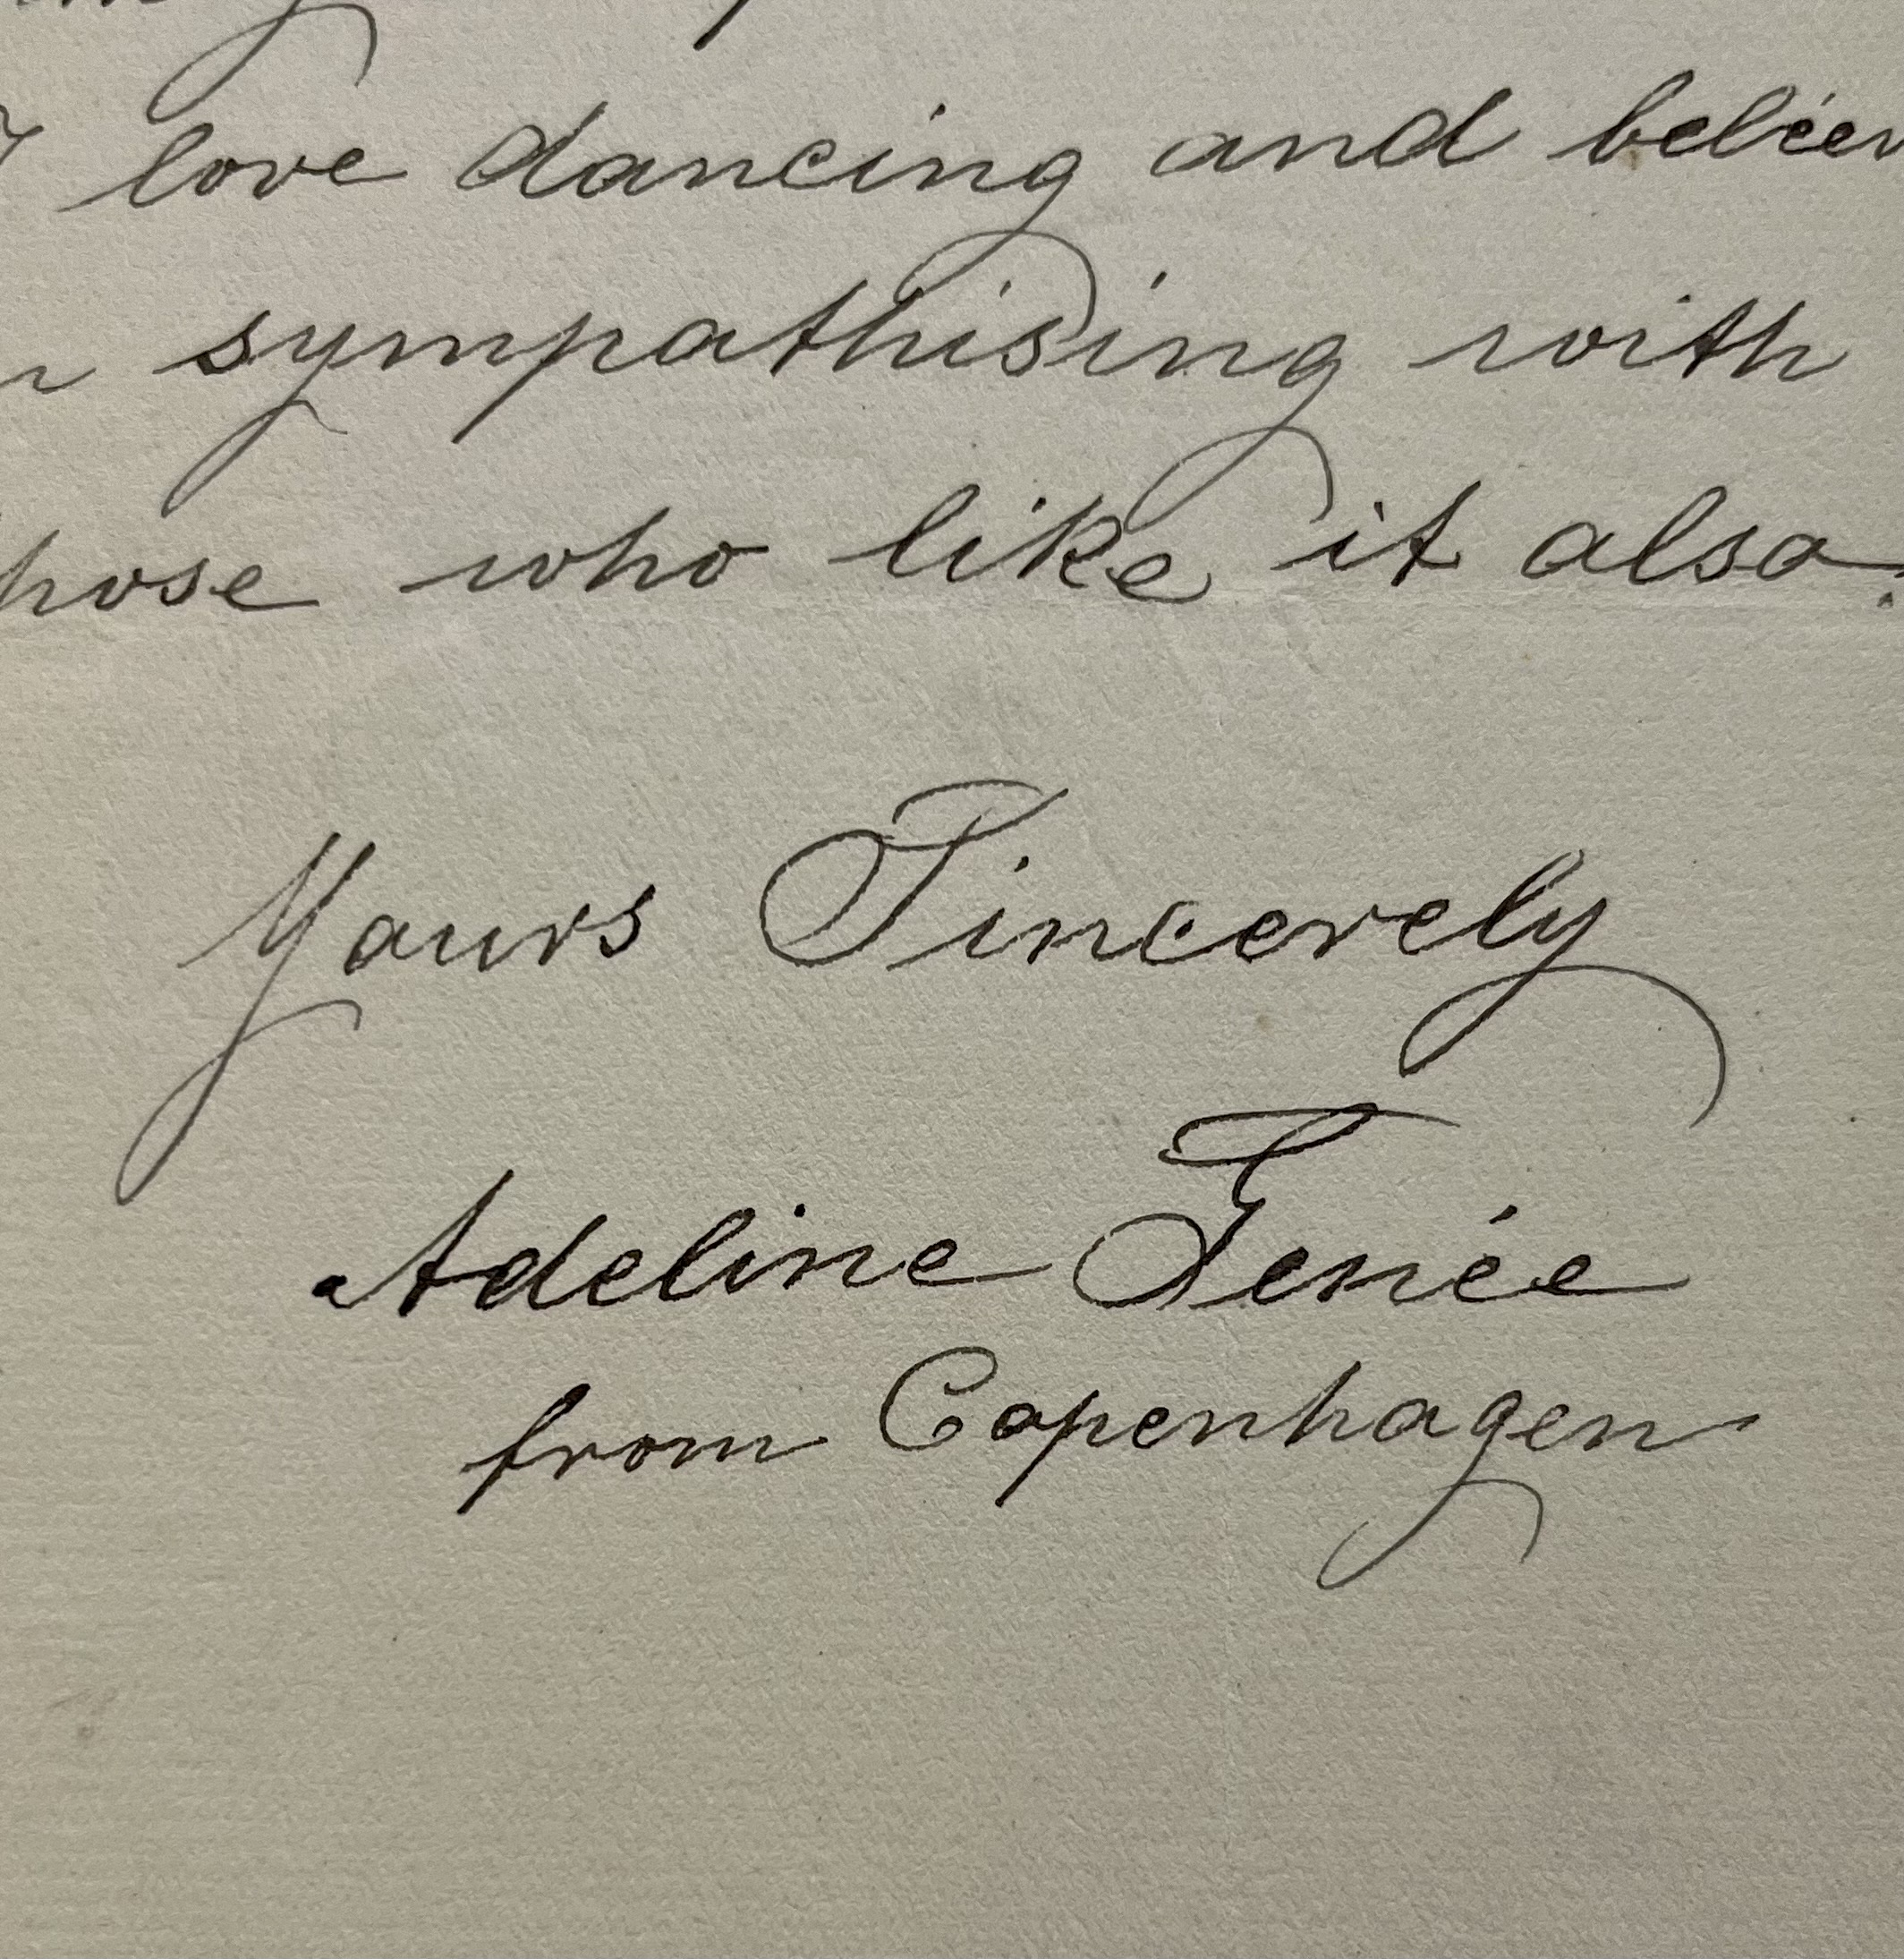 love dancing and believ
sympathising with
hose who like it also.
Yours Sincerely
Adeline Genée
from Copenhagen